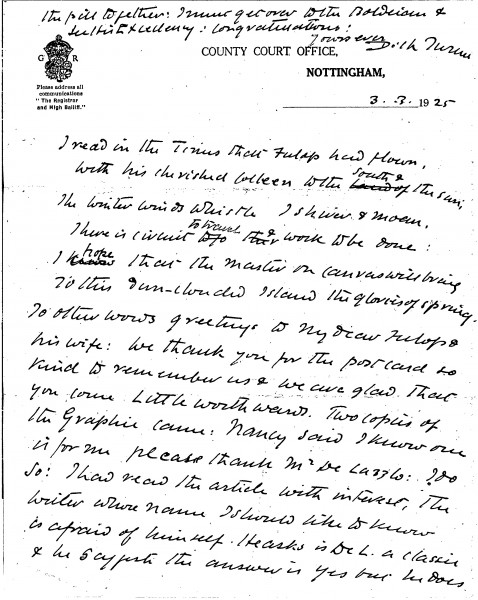 the pill together: I must get over to the Bodleian &
: Congratulations:
Yours ever Dick Turner
G R
COUNTY COURT OFFICE,
NOTTINGHAM,
Please address all
communications
"The Registrar
and High Bailiff."
3. 3. 1925
I read in the Times that Fulop had flown,
with his cherished Colleen to the south & of the sun,
The winter winds whistle I shiver & moan,
There is circuit to travel & work to be done:
I hope that the master on canvas will bring
To this Dun-clouded Island the glories of spring.
In other words greetings to my dear Fulop &
his wife: we thank you for the post card so
kind to remember us & we are glad that
you come Littleworthwards. Two copies of
the Graphic came: Nancy said I know one
is for me please thank Mr De Laszlo: I do
so: I had read the article with interest, the
writer whose name I should like to know
is afraid of himself. He asks is De L. a classic
& he suggests the answer is yes but he does